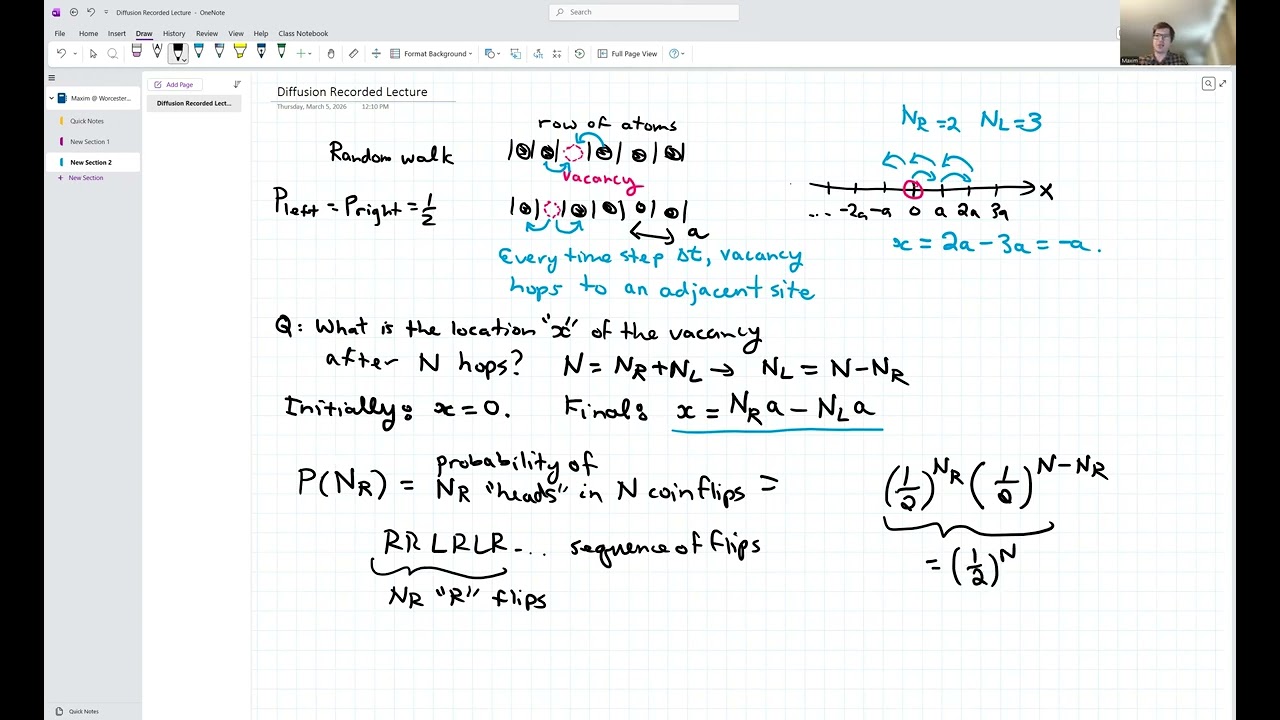 Diffusion Recorded Lecture - OneNote
Search
File Home Insert Draw History Review View Help Class Notebook
Format Background
Full Page View
Maxim
Maxim @ Worcester...
Quick Notes
New Section 1
New Section 2
New Section
Add Page
Diffusion Recorded Lect...
Diffusion Recorded Lecture
Thursday, March 5, 2026 12:10 PM
Random walk
P_left = P_right = 1/2
row of atoms
vacancy
a
Every time step Δt, vacancy
hops to an adjacent site
N_R = 2 N_L = 3
... -2a -a 0 a 2a 3a x
x = 2a - 3a = -a.
Q: What is the location "x" of the vacancy
after N hops? N = N_R + N_L → N_L = N - N_R
Initially: x = 0. Final: x = N_R a - N_L a
P(N_R) = probability of N_R "heads" in N coin flips = (1/2)^N_R (1/2)^N-N_R
= (1/2)^N
RRLRLR... sequence of flips
N_R "R" flips
Quick Notes